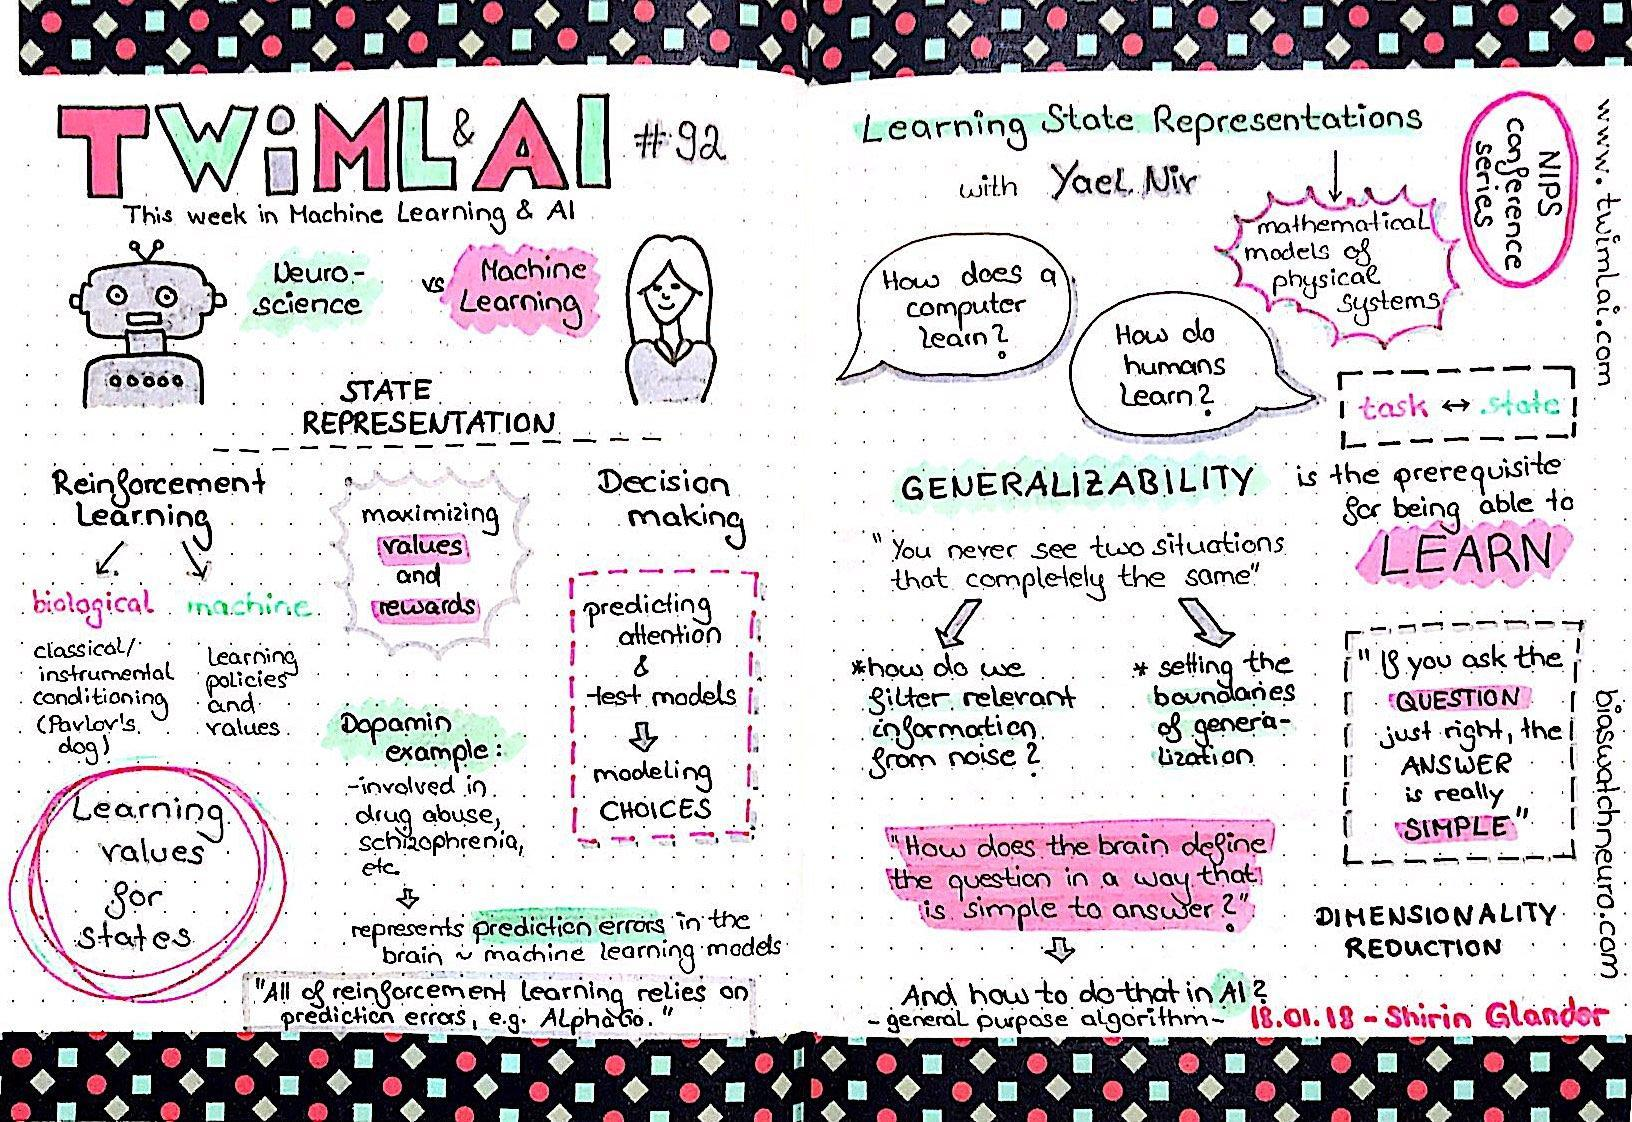 TWiML & AI #92
This week in Machine Learning & AI
Neuro-
science
vs
Machine
Learning
STATE
REPRESENTATION
Reinforcement
Learning
biological
classical/
instrumental
conditioning
(Pavlov's
dog)
machine
learning
policies
and
values
Learning
values
for
states
maximizing
values
and
rewards
Dopamin
example:
-involved in
drug abuse,
schizophrenia,
etc.
represents prediction errors in the
brain ~ machine learning models
Decision
making
predicting
attention
&
test models
modeling
CHOICES
"All of reinforcement learning relies on
prediction errors, e.g. AlphaGo."
Learning State Representations
with Yael Niv
mathematical
models of
physical
systems
NIPS
conference
series
www.twimlai.com
How does a
computer
learn?
How do
humans
learn?
task ↔ state
GENERALIZABILITY is the prerequisite
for being able to
LEARN
"You never see two situations
that completely the same"
*how do we
filter relevant
information
from noise?
* setting the
boundaries
of genera-
lization
"If you ask the
QUESTION
just right, the
ANSWER
is really
SIMPLE"
"How does the brain define
the question in a way that
is simple to answer?"
And how to do that in AI?
- general purpose algorithm -
DIMENSIONALITY
REDUCTION
biaswatchneuro.com
18.01.18 - Shirin Glander